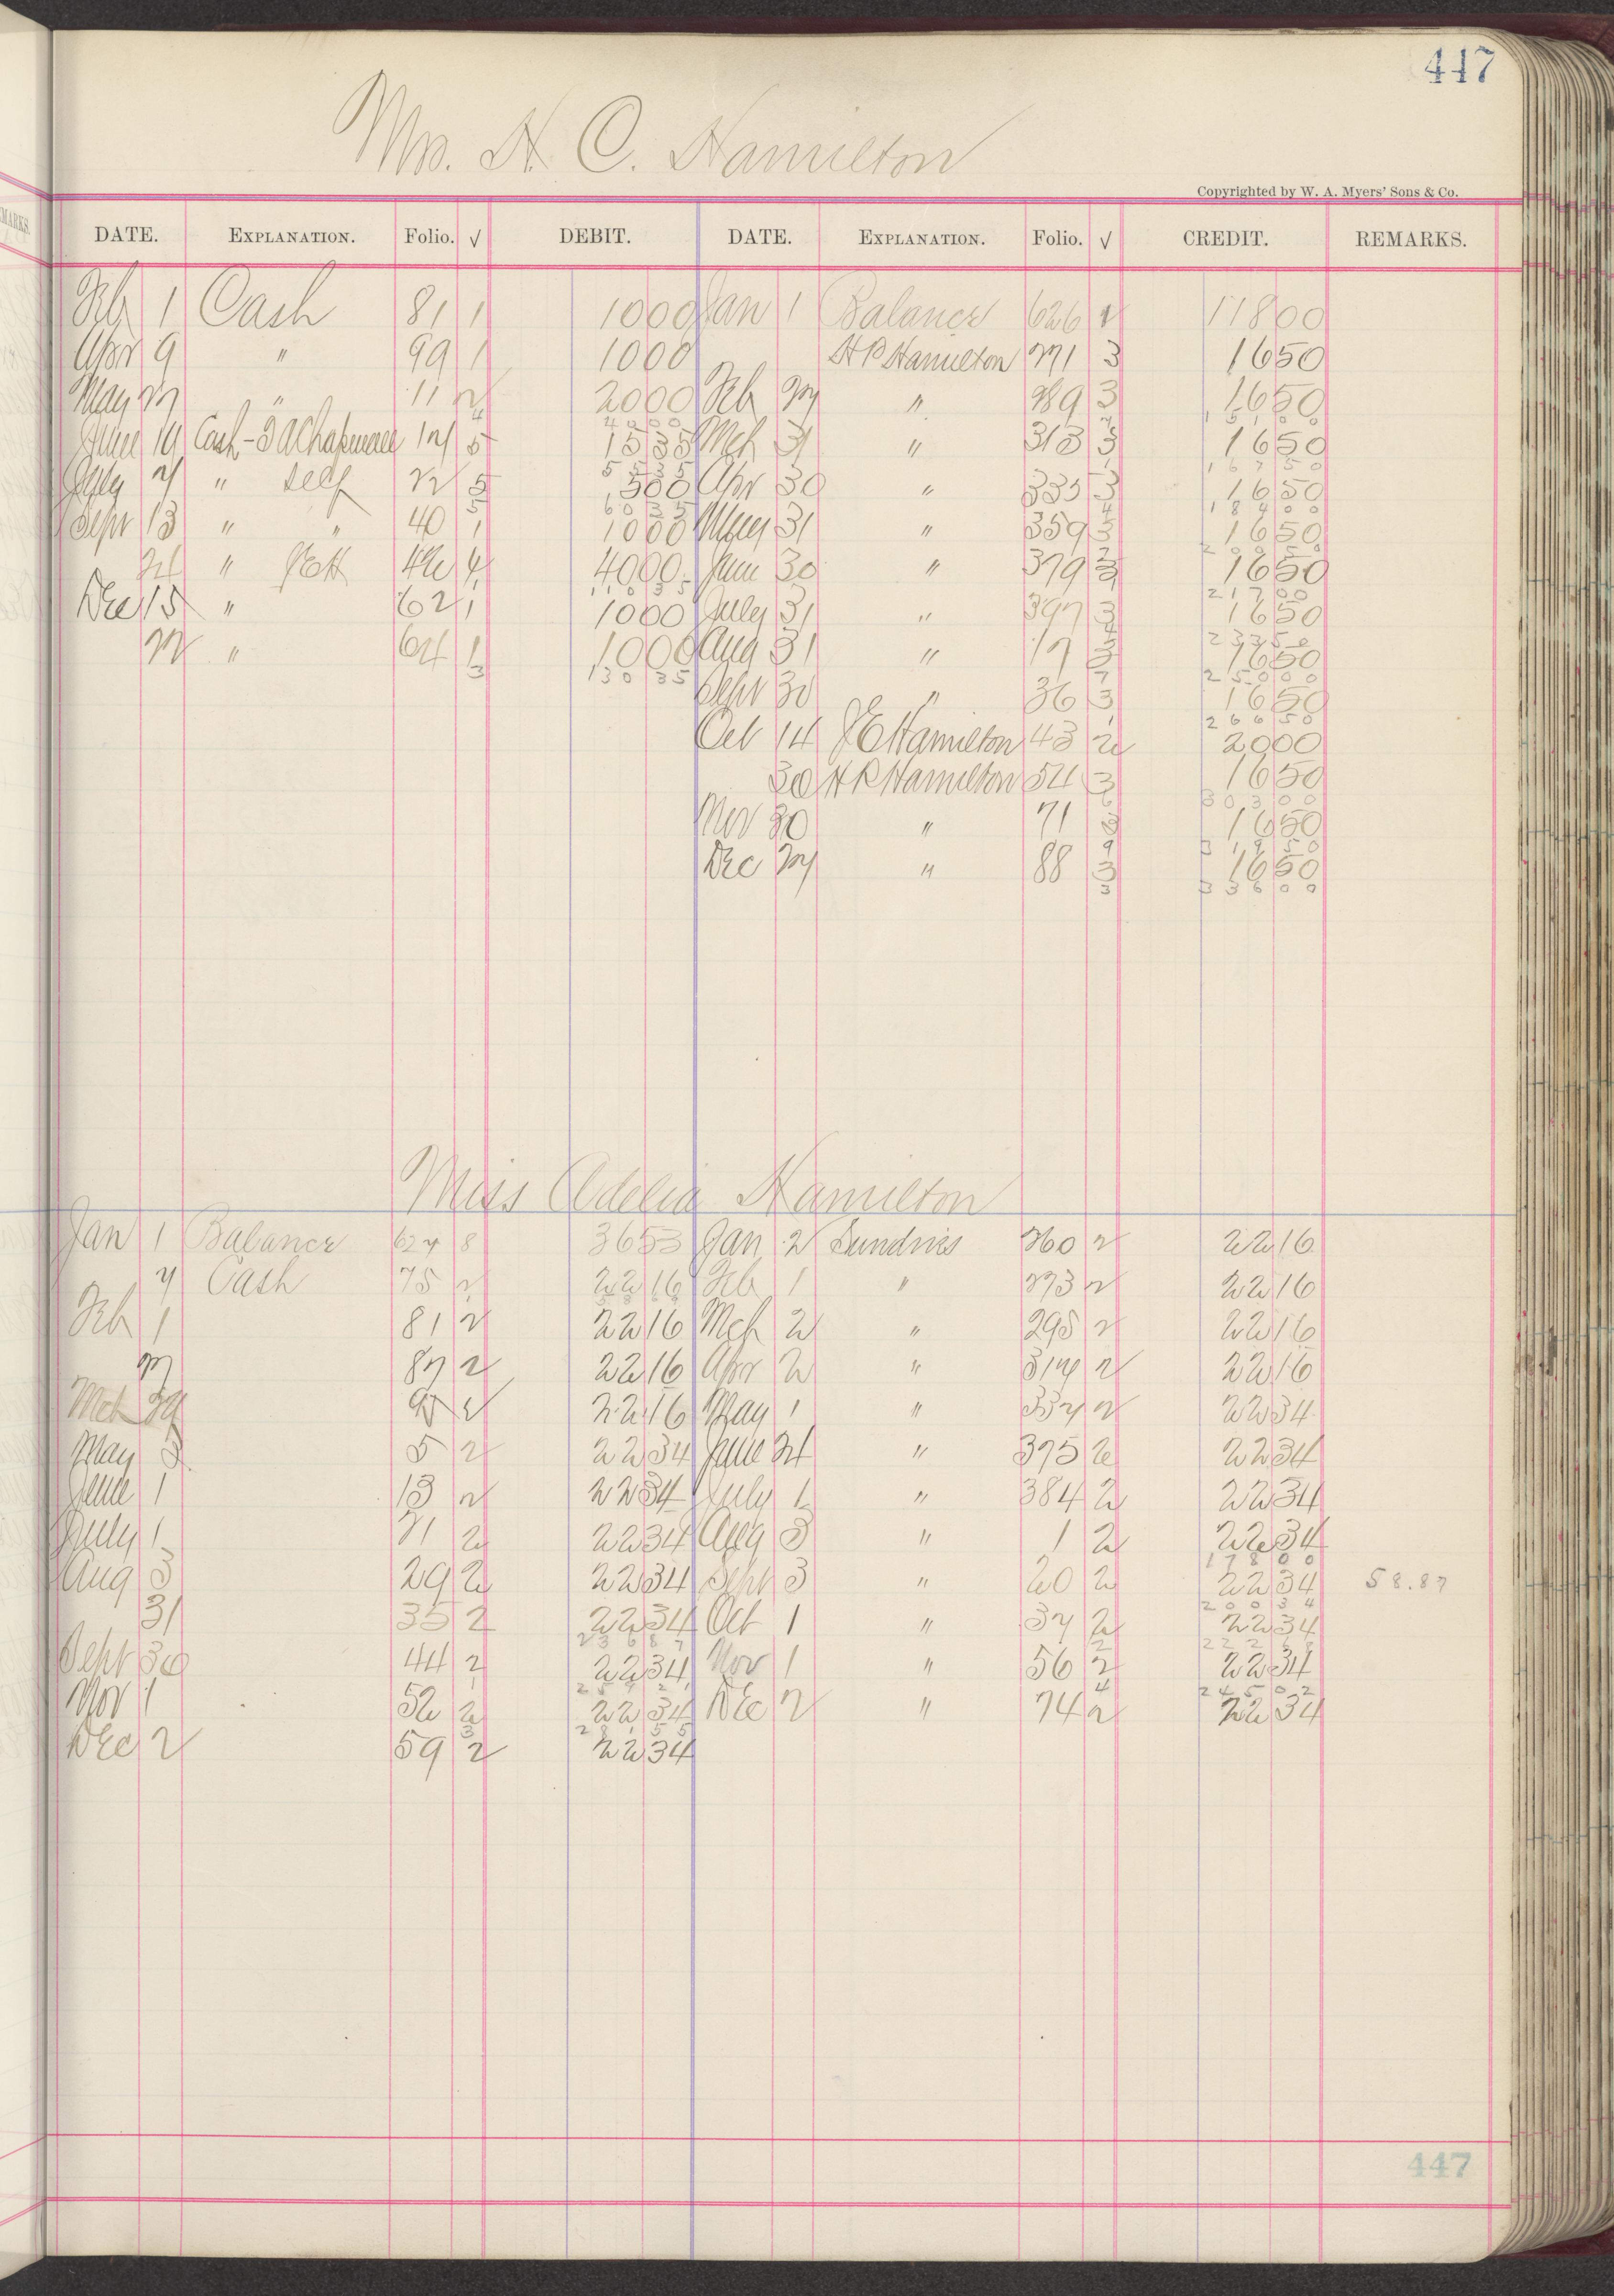 447
Mrs. H. C. Hamilton
Copyrighted by W. A. Myers' Sons & Co.
DATE. EXPLANATION. Folio. √ DEBIT. DATE. EXPLANATION. Folio. √ CREDIT. REMARKS.
Feb 1 Cash 81 1 1000 Jan 1 Balance 626 11800
Apr 9 " 99 1 1000 H R Hamilton 271 3 1650
May 27 " 11 2 2000 Feb 27 " 289 3 1650
4 4000 2 15100
June 14 Cash - 15 35 Mch 31 " 313 3 1650
5535 1 16750
July " self 5 500 Apr 30 " 335 3 1650
5 6035 4 18400
Sept 13 " " 40 1 1000 May 31 " 359 3 1650
20050
24 " 42 4 4000 June 30 " 379 3 1650
11035 21700
Dec 15 " 62 1 1000 July 31 " 397 3 1650
23350
22 " 64 1 1000 Aug 31 " 17 3 1650
3 13035 25000
Sept 30 " 36 3 1650
26650
Oct 14 J E Hamilton 43 2 2000
30 H R Hamilton 54 3 1650
6 30300
Nov 30 " 71 3 1650
9 31950
Dec 24 " 88 3 1650
3 33600
Miss Adelia Hamilton
Jan 1 Balance 624 8 3653 Jan 2 Sundries 260 2 2216
4 Cash 75 2 2216 Feb 1 " 273 2 2216
Feb 1 81 2 2216 Mch 2 " 295 2 2216
27 87 2 2216 Apr 2 " 314 2 2216
Mch 29 2 2216 May 1 " 334 2 2234
May 3 5 2 2234 June 24 " 375 2 2234
June 1 13 2 2234 July 1 " 384 2 2234
July 1 21 2 2234 Aug 3 " 1 2 2234
17800
Aug 3 29 2 2234 Sept 3 " 20 2 2234 58.87
20034
31 35 2 2234 Oct 1 " 37 2 2234
23687 2 22268
Sept 30 44 2 2234 Nov 1 " 56 2 2234
1 4 24502
Nov 1 52 2 2234 Dec 2 " 74 2 2234
3 28155
Dec 2 59 2 2234
447